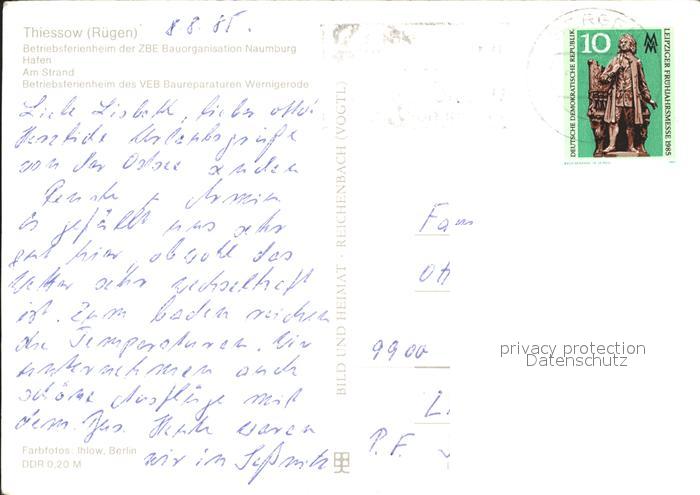 Thiessow (Rügen)
8.8.85.
Betriebsferienheim der ZBE Bauorganisation Naumburg
Hafen
Am Strand
Betriebsferienheim des VEB Baureparaturen Wernigerode
Liebe Lisbeth, lieber Otto!
Herzliche Urlaubsgrüße
von der Ostsee senden
Renate u. Armin
Es gefällt uns sehr
gut hier, obwohl das
Wetter sehr wechselhaft
ist. Zum baden reichen
die Temperaturen. Wir
unternehmen auch
schöne Ausflüge mit
dem Bus. Heute waren
wir in Saßnitz
Farbfotos: Ihlow, Berlin
DDR 0,20 M
BILD UND HEIMAT · REICHENBACH (VOGTL)
DEUTSCHE DEMOKRATISCHE REPUBLIK
10
MM
LEIPZIGER FRÜHJAHRSMESSE 1985
Fam
Ott
9900
privacy protection
Datenschutz
P.F.